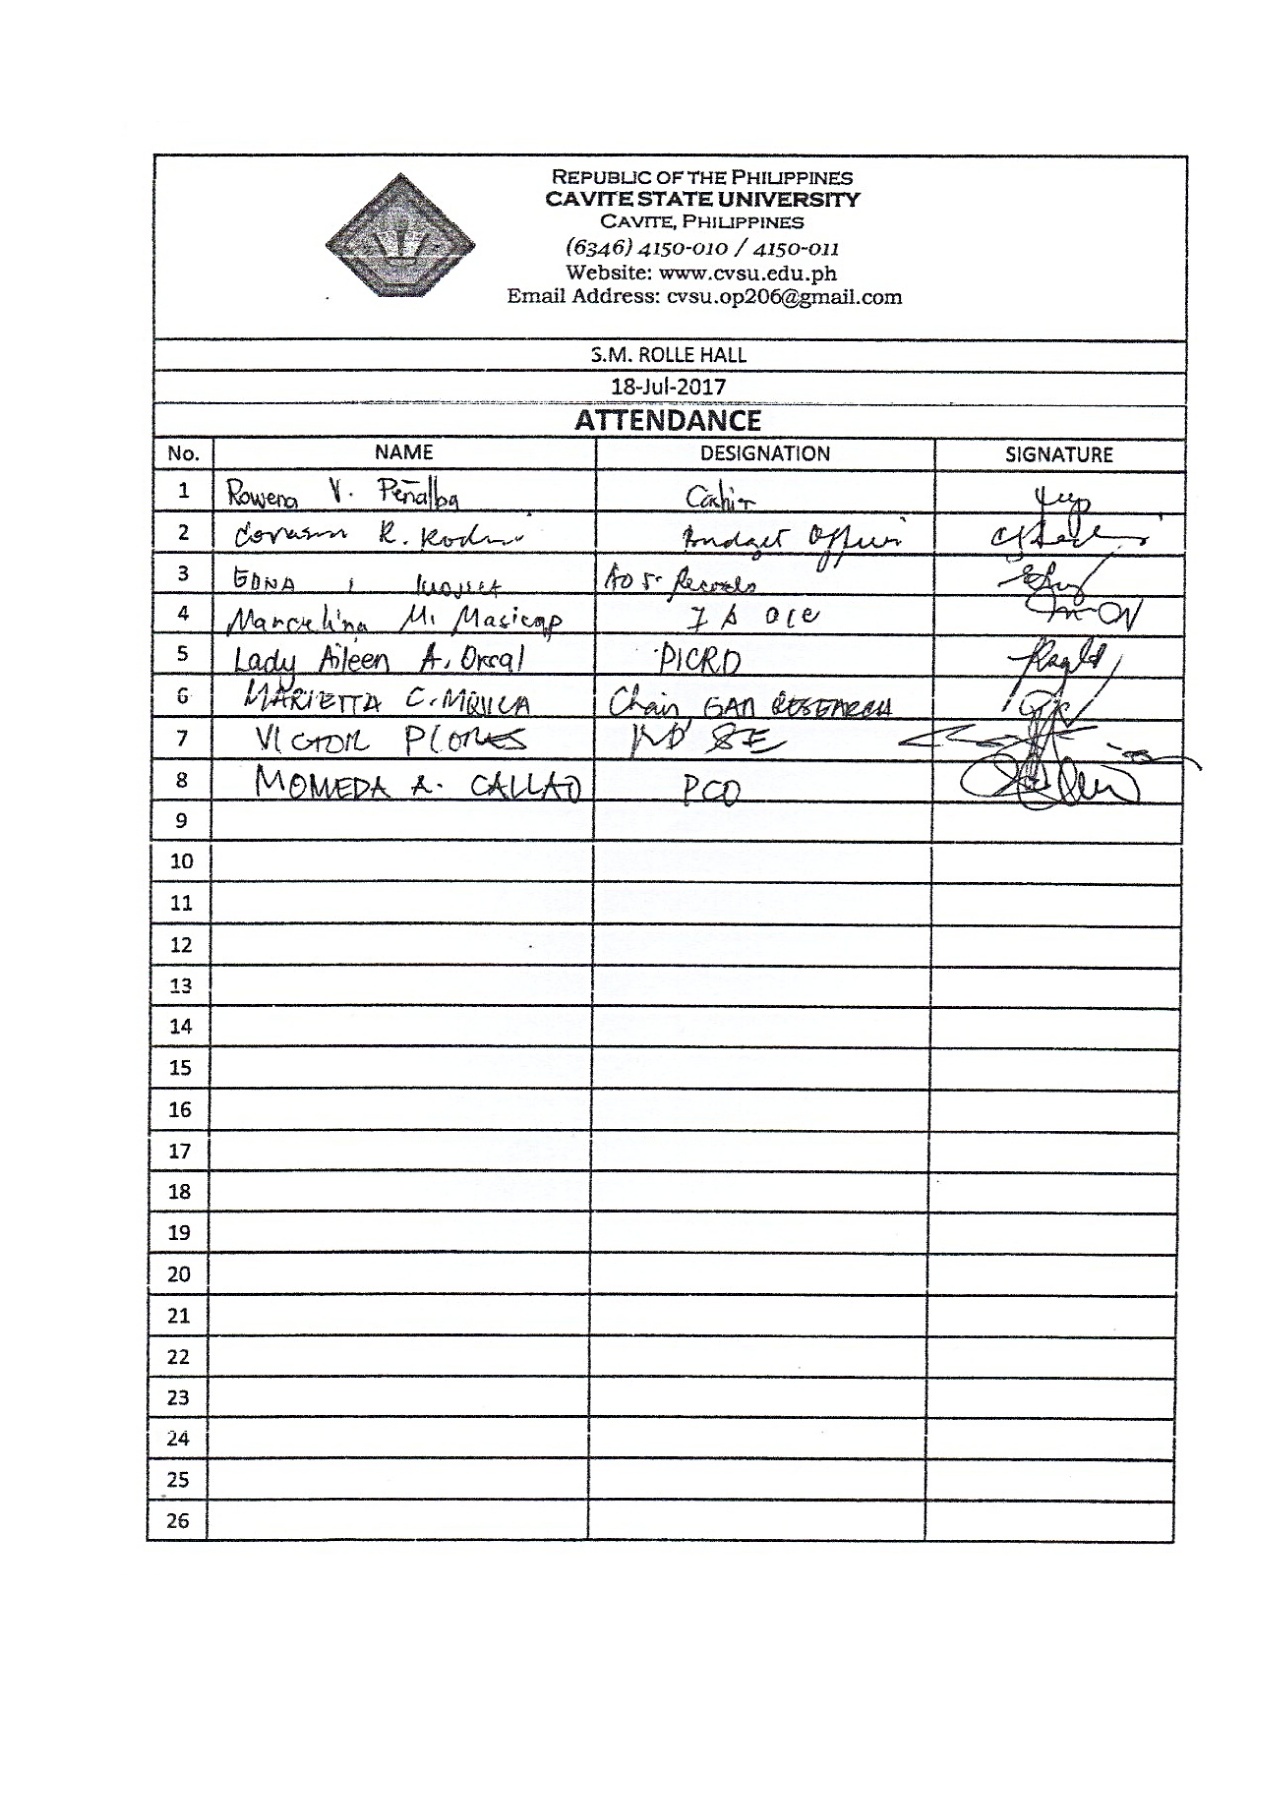 REPUBLIC OF THE PHILIPPINES
CAVITE STATE UNIVERSITY
CAVITE, PHILIPPINES
(6346) 4150-010 / 4150-011
Website: www.cvsu.edu.ph
Email Address: cvsu.op206@gmail.com
S.M. ROLLE HALL
18-Jul-2017
ATTENDANCE
No. NAME DESIGNATION SIGNATURE
1 Rowena V. Peñalba Cashier
2 R. Budget Officer
3 EDNA Records
4 Marcelina M.
5 Lady Aileen A. Orsal PICRD
6 MARIETTA C. MOJICA Chair, GAD RESEARCH
7 VICTOR
8 A. CALLAO PCO
9
10
11
12
13
14
15
16
17
18
19
20
21
22
23
24
25
26